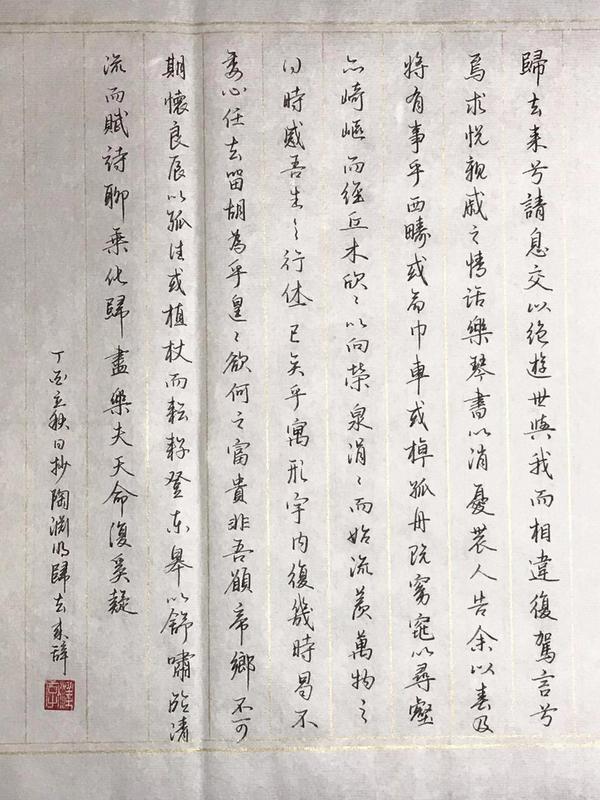 歸去来兮請息交以絕遊世與我而相違復駕言兮
焉求悅親戚之情話樂琴書以消憂農人告余以春及
將有事乎西疇或命巾車或棹孤舟既窈窕以尋壑
亦崎嶇而經丘木欣〻以向榮泉涓〻而始流羨萬物之
得時感吾生之行休已矣乎寓形宇内復幾時曷不
委心任去留胡為乎遑〻欲何之富貴非吾願帝鄉不可
期懷良辰以孤往或植杖而耘耔登東皋以舒嘯臨清
流而賦詩聊乘化歸盡樂夫天命復奚疑
丁酉立秋日抄陶淵明歸去来辭